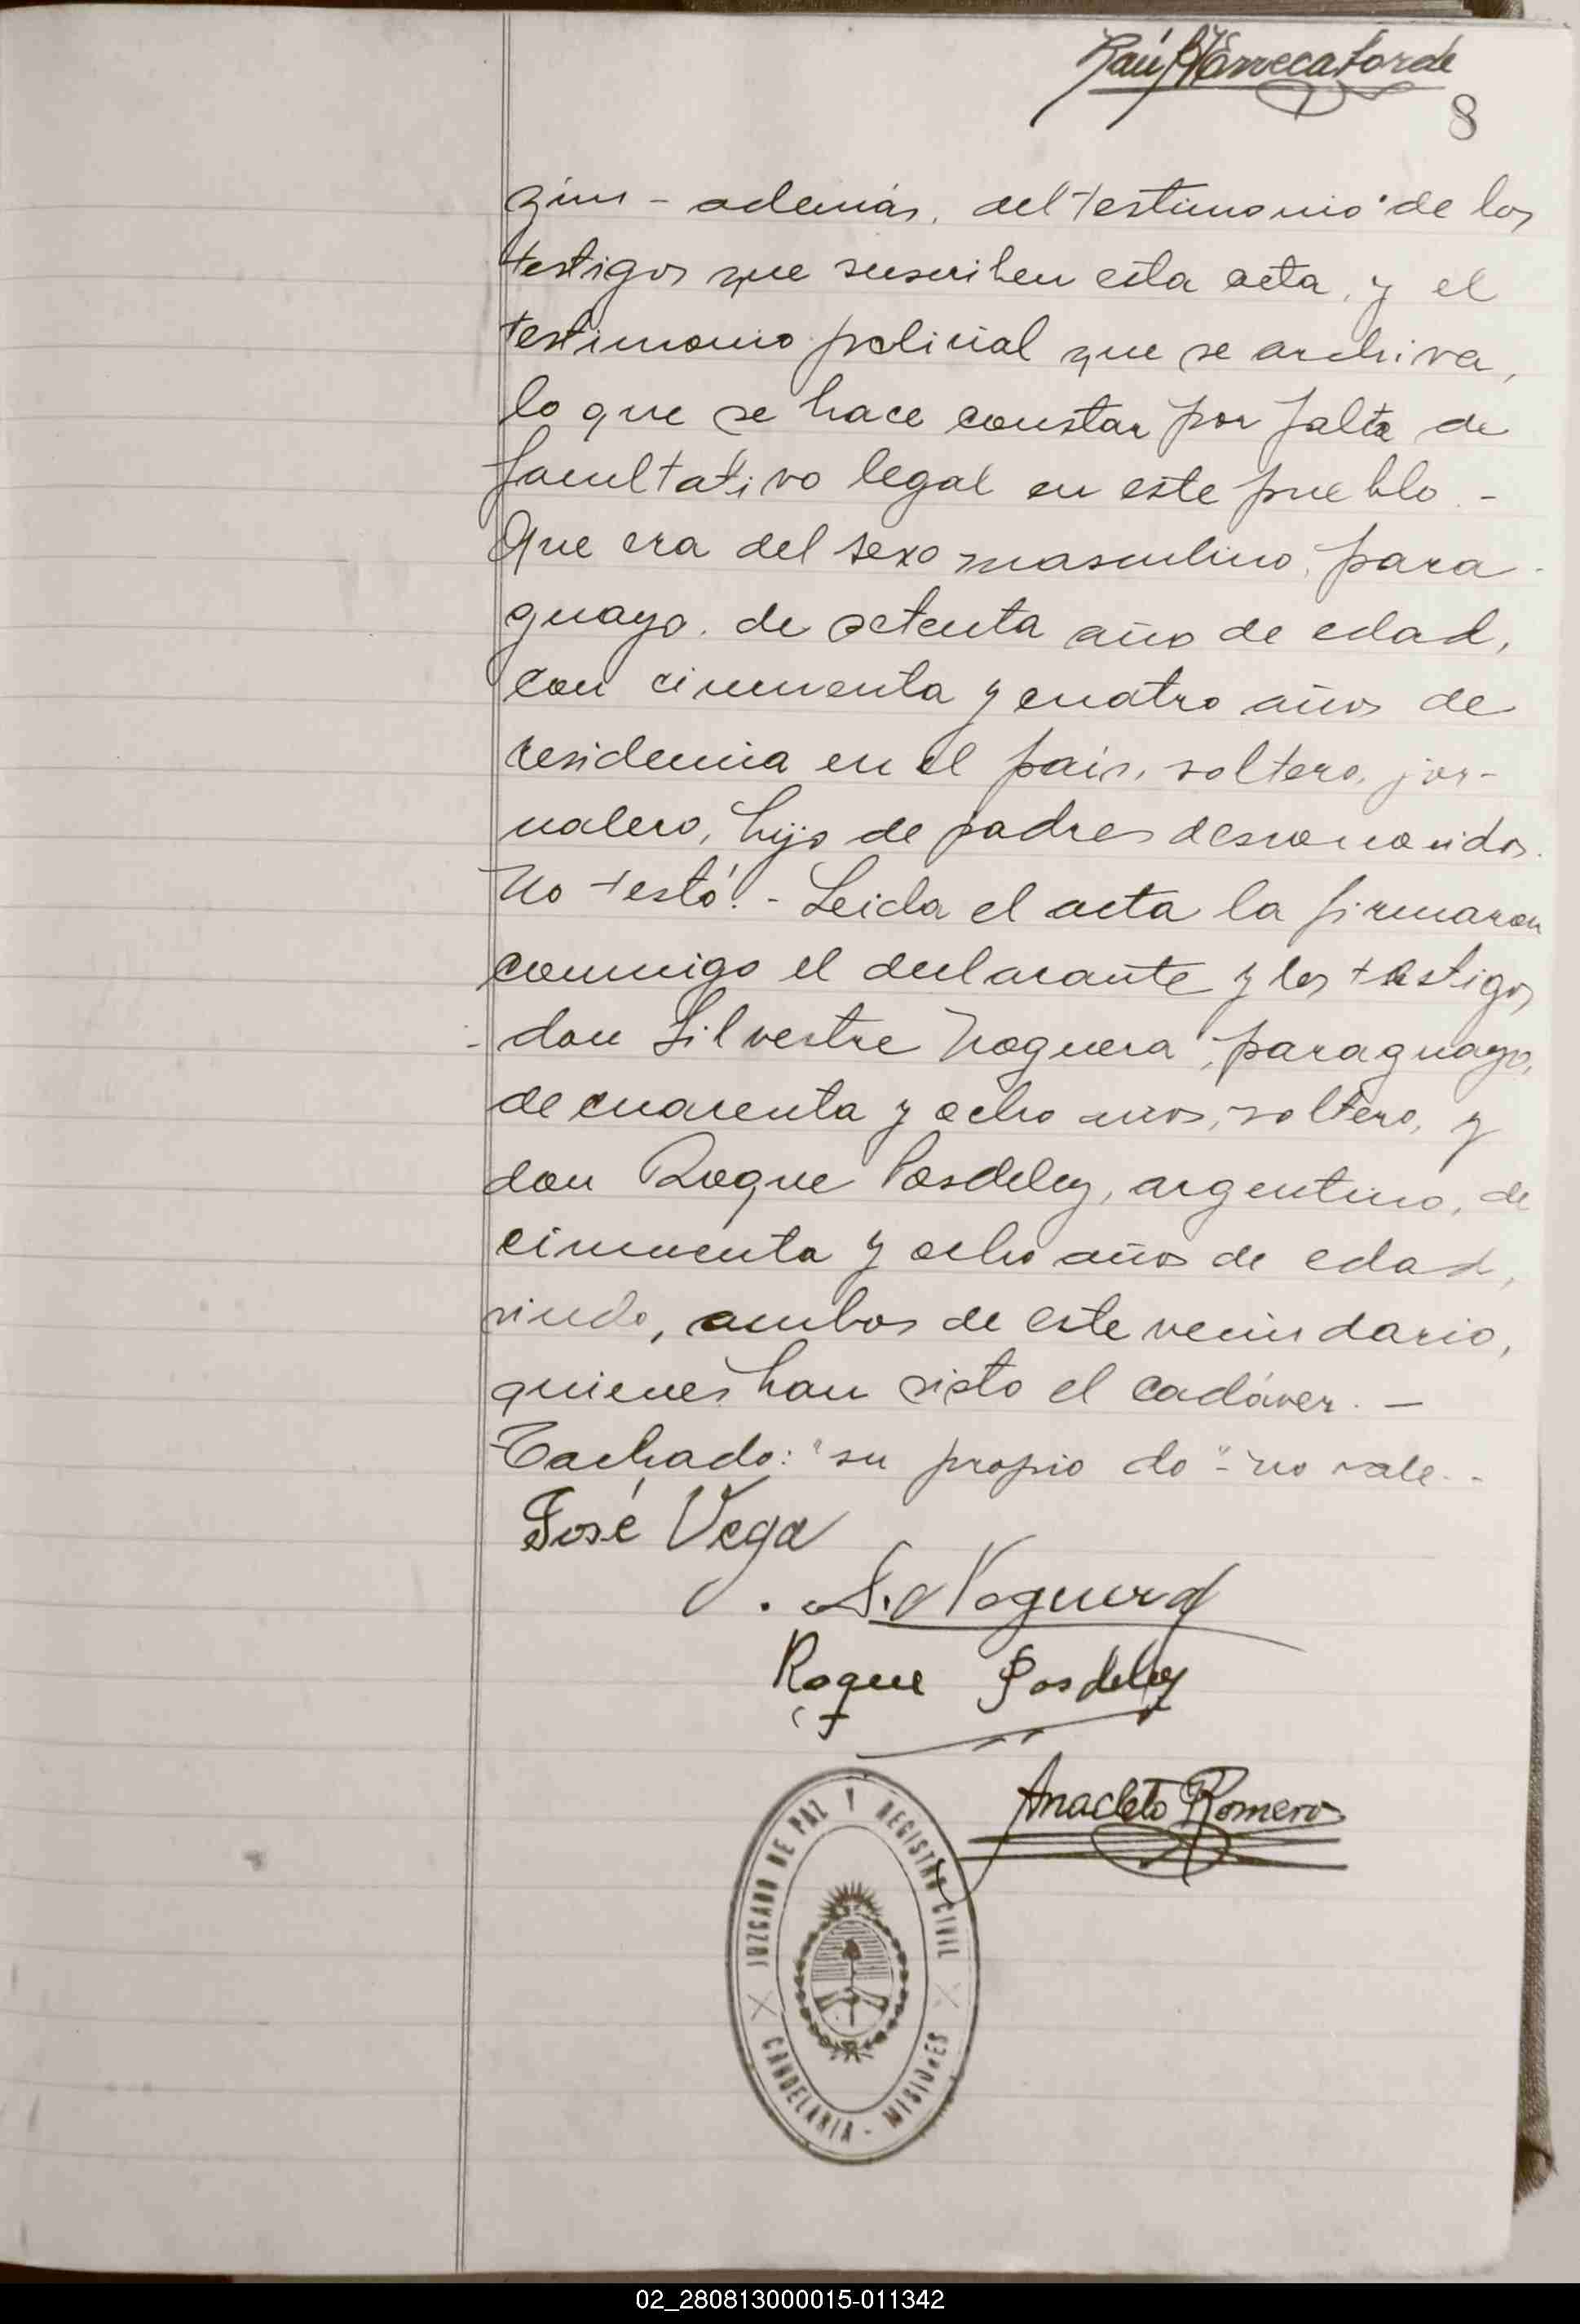 Raúl Yorrecatorde
8
gún - además, del testimonio de los
testigos que suscriben esta acta, y el
testimonio policial que se archiva,
lo que se hace constar por falta de
facultativo legal en este pueblo. -
Que era del sexo masculino, para-
guayo, de setenta año de edad,
con cincuenta y cuatro años de
residencia en el país, soltero, jor-
nalero, hijo de padres desconocidos.
No testó. - Leida el acta la firmaron
conmigo el declarante y los testigos
don Silvestre Noguera, paraguayo,
de cuarenta y ocho años, soltero, y
don Roque Posdeley, argentino, de
cincuenta y ocho años de edad,
viudo, ambos de este vecindario,
quienes han visto el cadáver. -
Tachado: "su propio do" - no vale. -
José Vega
S. Noguera
Roque Posdeley
Anacleto Romero
JUZGADO DE PAZ Y REGISTRO CIVIL
CANDELARIA - MISIONES
02_280813000015-011342